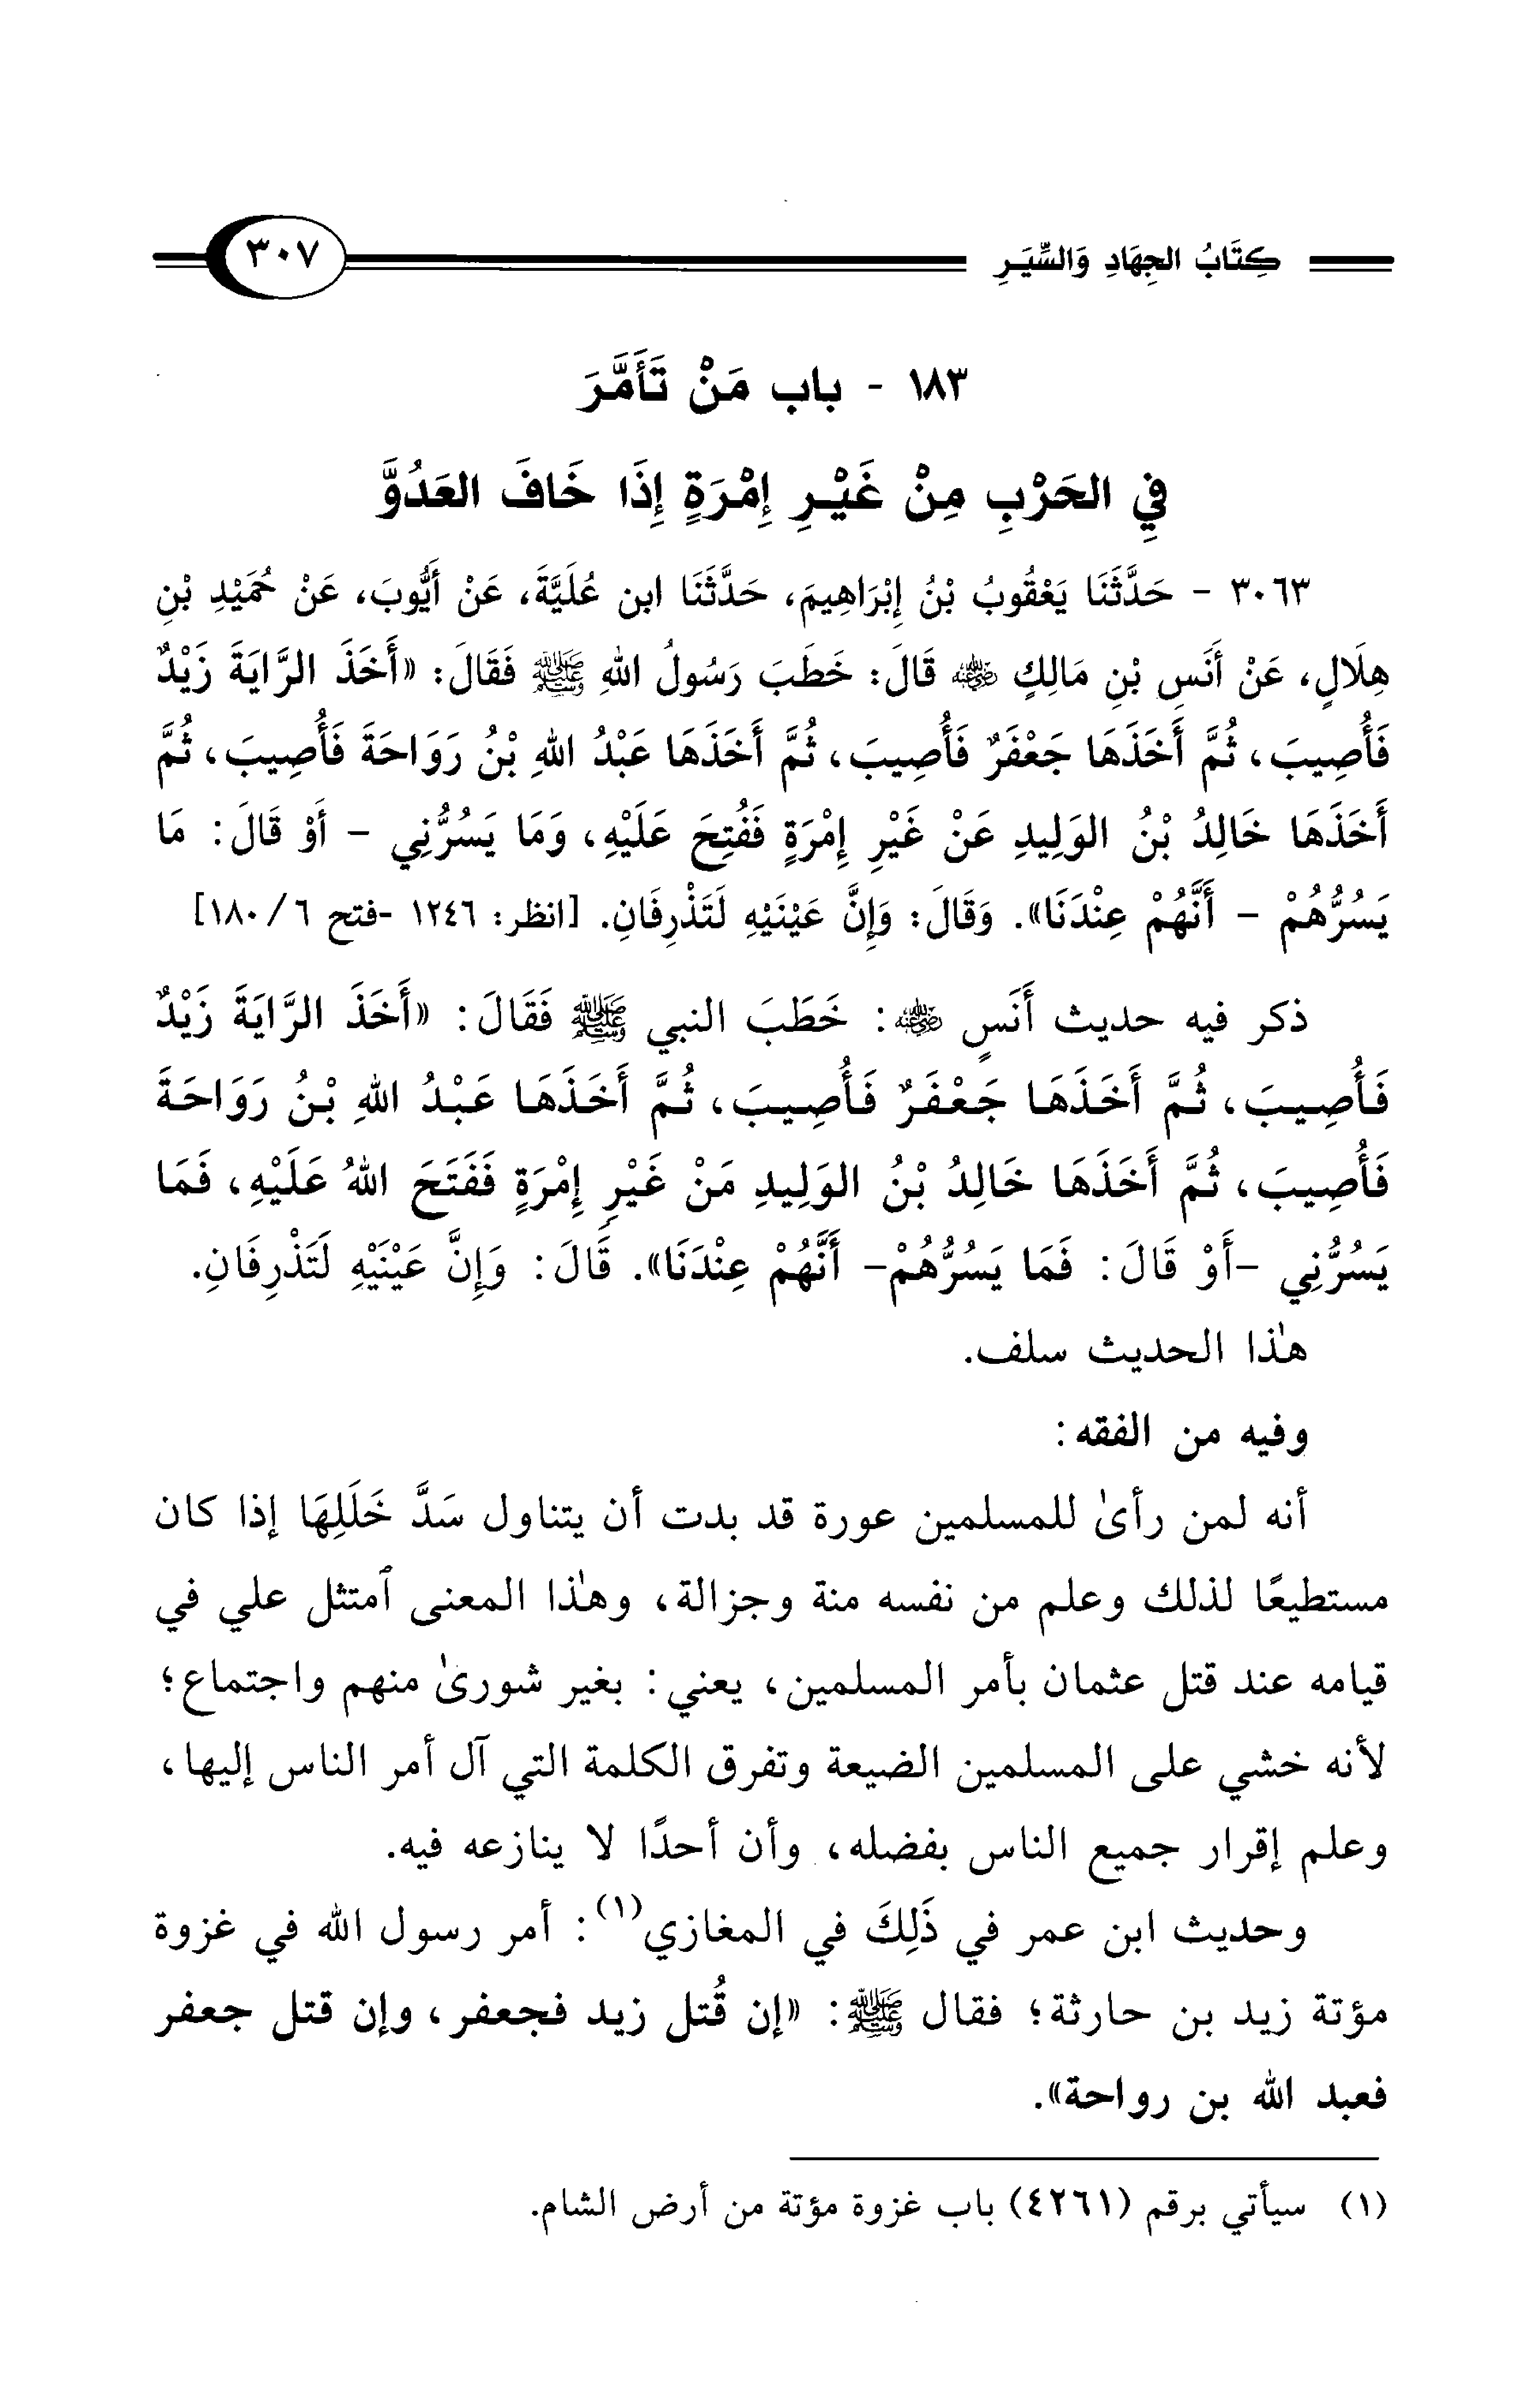 كِتَابُ الجِهَادِ وَالسِّيَرِ ٣٠٧
١٨٣ - باب مَنْ تَأَمَّرَ
فِي الحَرْبِ مِنْ غَيْرِ إِمْرَةٍ إِذَا خَافَ العَدُوَّ
٣٠٦٣ - حَدَّثَنَا يَعْقُوبُ بْنُ إِبْرَاهِيمَ، حَدَّثَنَا ابن عُلَيَّةَ، عَنْ أَيُّوبَ، عَنْ حُمَيْدِ بْنِ
هِلَالٍ، عَنْ أَنَسِ بْنِ مَالِكٍ رضي الله عنه قَالَ: خَطَبَ رَسُولُ اللهِ ﷺ فَقَالَ: «أَخَذَ الرَّايَةَ زَيْدٌ
فَأُصِيبَ، ثُمَّ أَخَذَهَا جَعْفَرٌ فَأُصِيبَ، ثُمَّ أَخَذَهَا عَبْدُ اللهِ بْنُ رَوَاحَةَ فَأُصِيبَ، ثُمَّ
أَخَذَهَا خَالِدُ بْنُ الوَلِيدِ عَنْ غَيْرِ إِمْرَةٍ فَفُتِحَ عَلَيْهِ، وَمَا يَسُرُّنِي - أَوْ قَالَ: مَا
يَسُرُّهُمْ - أَنَّهُمْ عِنْدَنَا». وَقَالَ: وَإِنَّ عَيْنَيْهِ لَتَذْرِفَانِ. [انظر: ١٢٤٦ -فتح ٦/ ١٨٠]
ذكر فيه حديث أَنَسٍ رضي الله عنه: خَطَبَ النبي ﷺ فَقَالَ: «أَخَذَ الرَّايَةَ زَيْدٌ
فَأُصِيبَ، ثُمَّ أَخَذَهَا جَعْفَرٌ فَأُصِيبَ، ثُمَّ أَخَذَهَا عَبْدُ اللهِ بْنُ رَوَاحَةَ
فَأُصِيبَ، ثُمَّ أَخَذَهَا خَالِدُ بْنُ الوَلِيدِ مَنْ غَيْرِ إِمْرَةٍ فَفَتَحَ اللهُ عَلَيْهِ، فَمَا
يَسُرُّنِي -أَوْ قَالَ: فَمَا يَسُرُّهُمْ- أَنَّهُمْ عِنْدَنَا». قَالَ: وَإِنَّ عَيْنَيْهِ لَتَذْرِفَانِ.
هٰذا الحديث سلف.
وفيه من الفقه:
أنه لمن رأىٰ للمسلمين عورة قد بدت أن يتناول سَدَّ خَلَلِهَا إذا كان
مستطيعًا لذلك وعلم من نفسه منة وجزالة، وهٰذا المعنى ٱمتثل علي في
قيامه عند قتل عثمان بأمر المسلمين، يعني: بغير شورىٰ منهم واجتماع؛
لأنه خشي على المسلمين الضيعة وتفرق الكلمة التي آل أمر الناس إليها،
وعلم إقرار جميع الناس بفضله، وأن أحدًا لا ينازعه فيه.
وحديث ابن عمر في ذَلِكَ في المغازي(١): أمر رسول الله في غزوة
مؤتة زيد بن حارثة؛ فقال ﷺ: «إن قُتل زيد فجعفر، وإن قتل جعفر
فعبد الله بن رواحة».
(١) سيأتي برقم (٤٢٦١) باب غزوة مؤتة من أرض الشام.